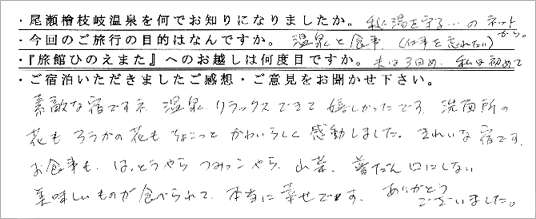 ・尾瀬檜枝岐温泉を何でお知りになりましたか。 秘湯を守る…の ネットから。
・今回のご旅行の目的はなんですか。 温泉と食事 (仕事を忘れたい)
・『旅館ひのえまた』へのお越しは何度目ですか。 夫は3回め、私は初めて
・ご宿泊いただきましたご感想・ご意見をお聞かせ下さい。
素敵な宿ですネ。温泉 リラックスできて 嬉しかったです。洗面所の
花も ろうかの花も ちょこっと かわいらしく 感動しました。きれいな宿です。
お食事も、はっとうやら つみっこやら、山菜、普だん口にしない
美味しいものが食べられて、本当に幸せです。 ありがとう
ございました。